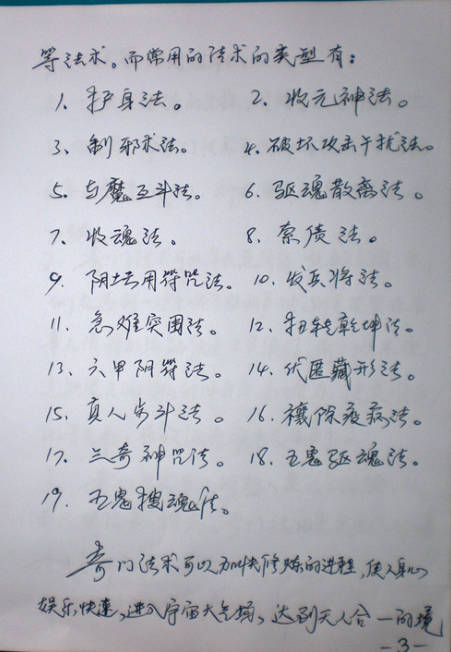 等法术。而常用的法术的类型有：
1、护身法。 2、收元神法。
3、制邪术法。 4、破坏攻击干扰法。
5、与魔互斗法。 6、驱魂散离法。
7、收魂法。 8、索债法。
9、阴坛用符咒法。 10、发兵将法。
11、急难突围法。 12、扭转乾坤法。
13、六甲阴符法。 14、代匿藏形法。
15、真人步斗法。 16、禳除疫病法。
17、三奇神咒法。 18、五鬼驱魂法。
19、五鬼搜魂法。
奇门法术可以加快修炼的进程，使人身心
娱乐，快速，进入宇宙大气场，达到天人合一的境
-3-